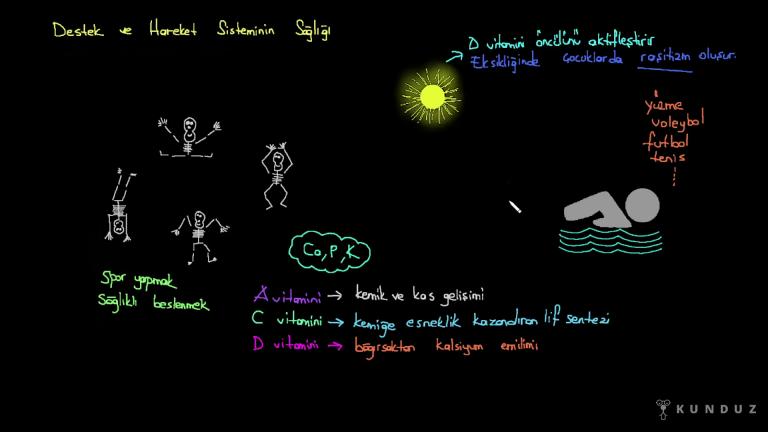 Destek ve Hareket Sisteminin Sağlığı
D vitamini öncülünü aktifleştirir
Eksikliğinde çocuklarda raşitizm oluşur.
yüzme
voleybol
futbol
tenis
Ca, P, K
Spor yapmak
Sağlıklı beslenmek
A vitamini → kemik ve kas gelişimi
C vitamini → kemiğe esneklik kazandıran lif sentezi
D vitamini → bağırsaktan kalsiyum emilimi
KUNDUZ